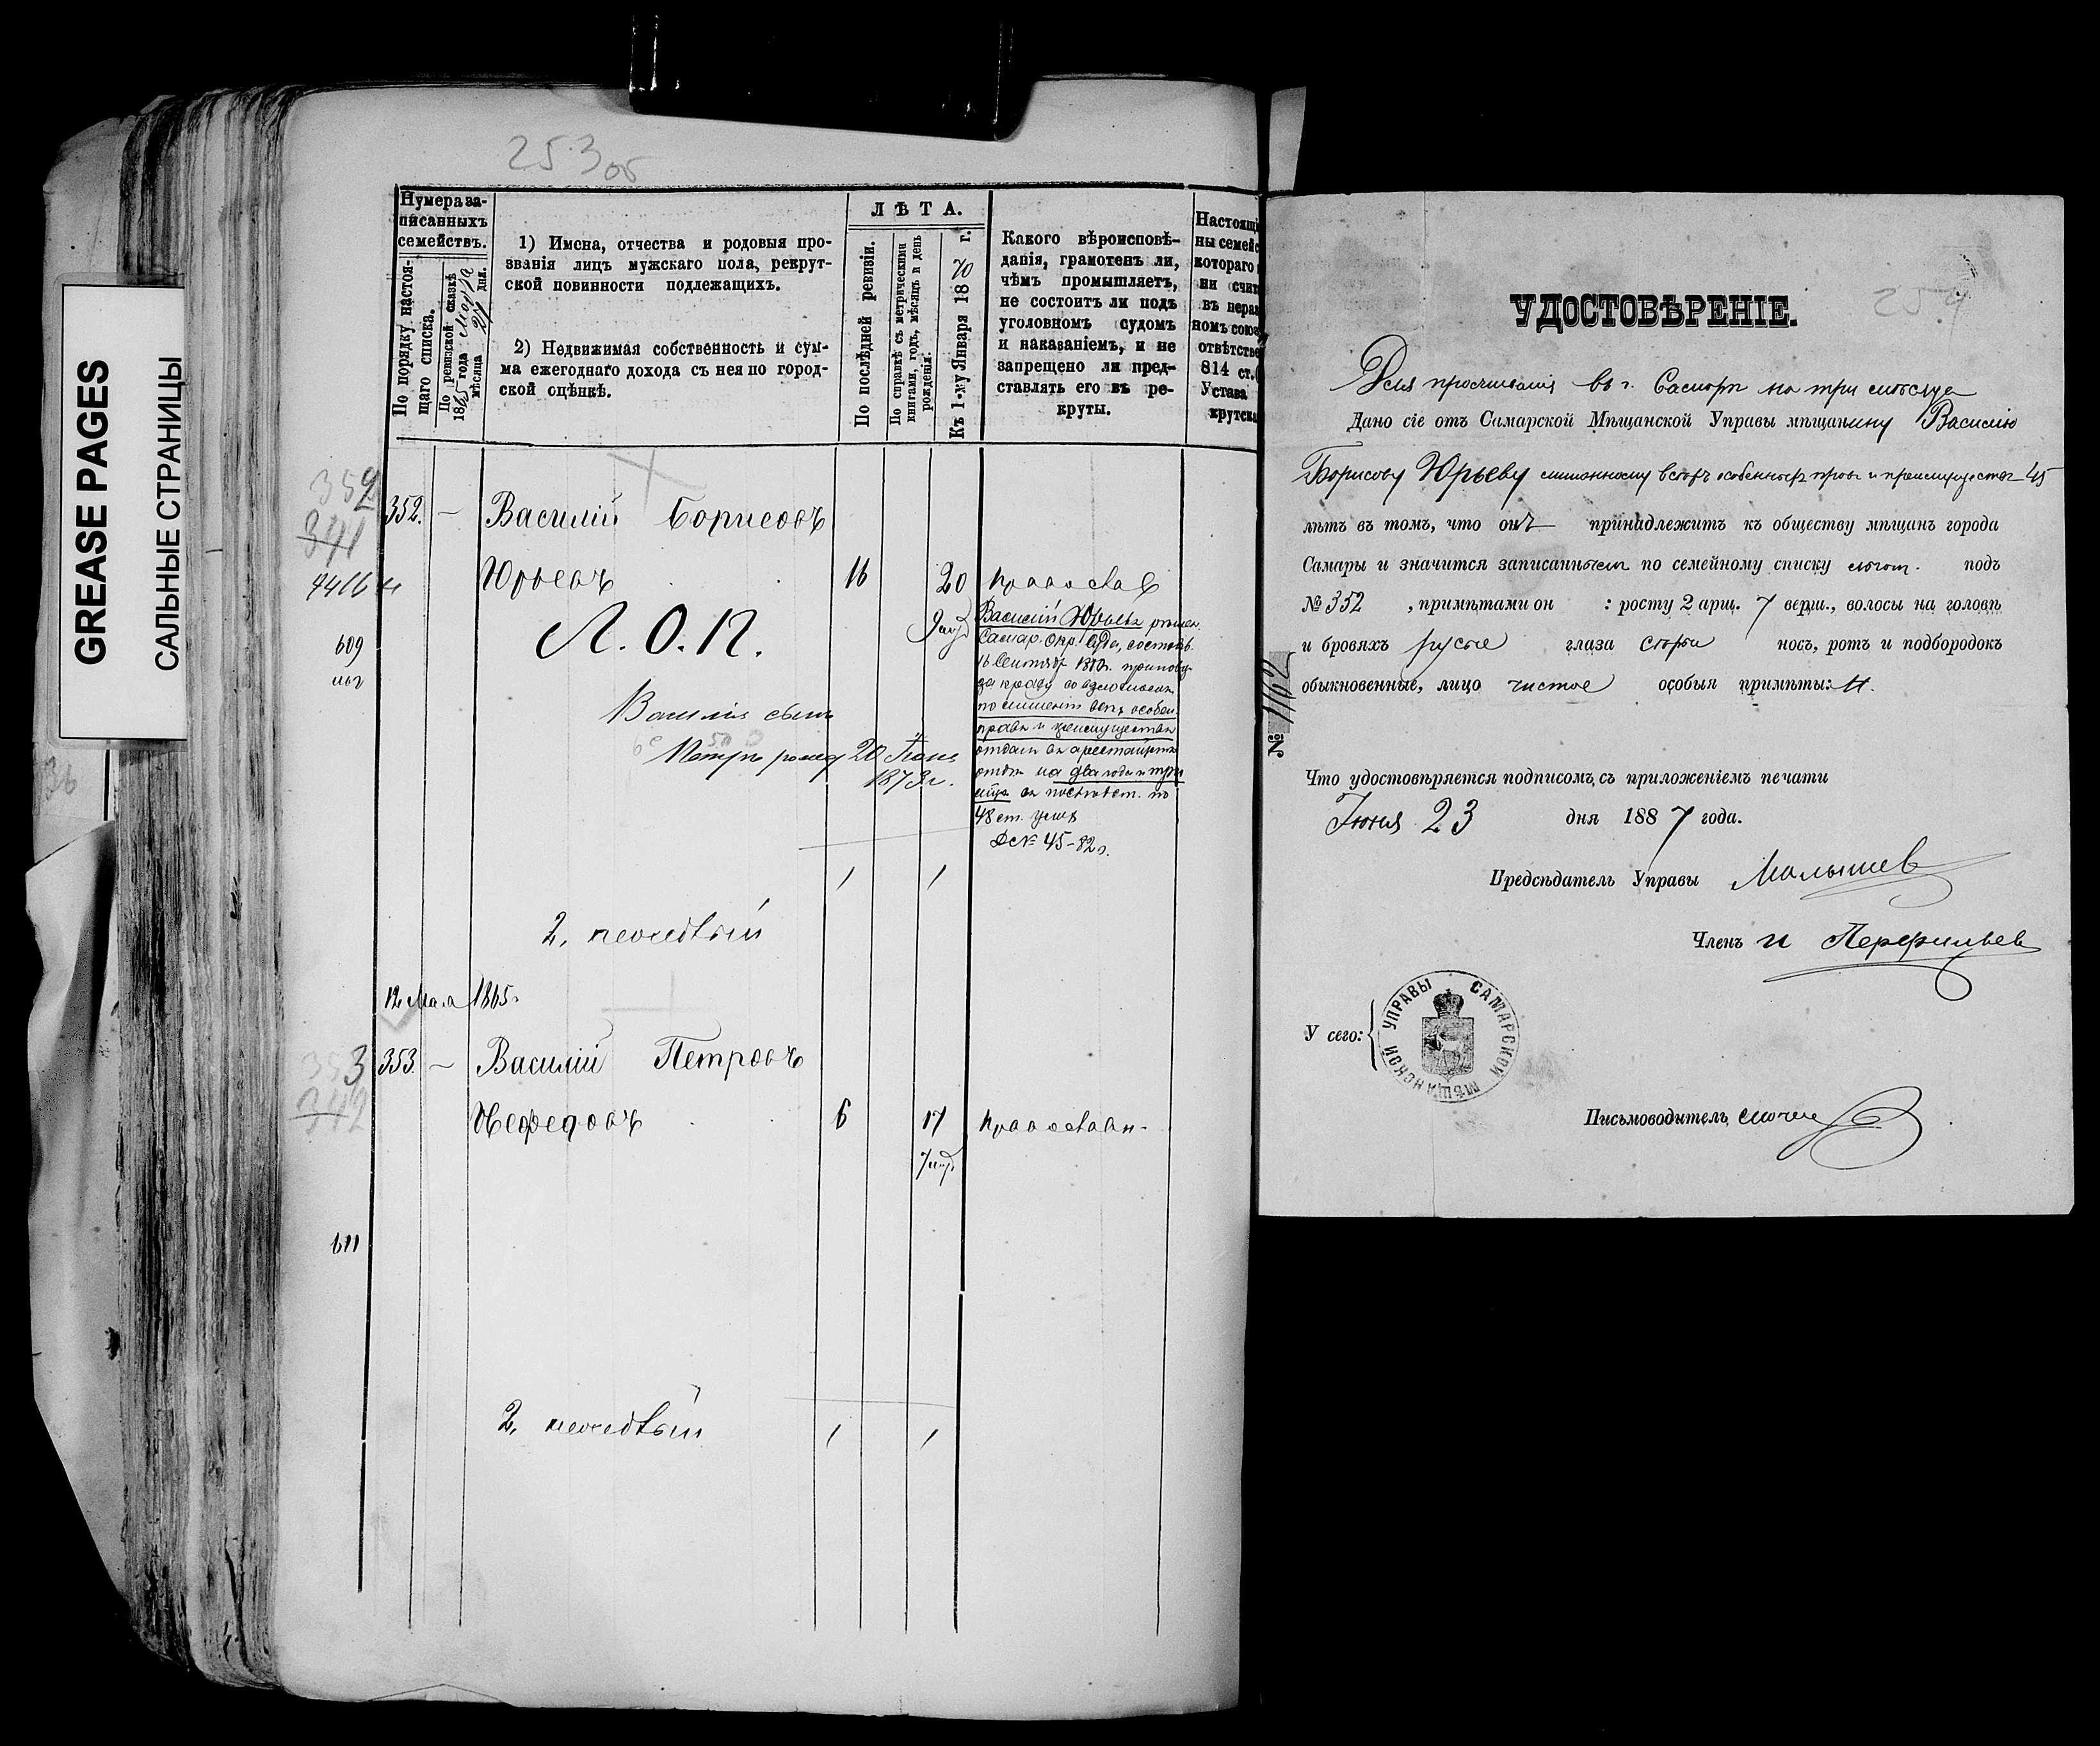 GREASE PAGES
САЛЬНЫЕ СТРАНИЦЫ
253 об
Нумера за-
писанныхъ
семействъ.
По порядку настоя-
щаго списка.
По ревизской сказкѣ
186 года
мѣсяца 27 дня.
1) Имена, отчества и родовыя про-
званія лицъ мужскаго пола, рекрут-
ской повинности подлежащихъ.
2) Недвижимая собственность и сум-
ма ежегоднаго дохода съ нея по город-
ской оцѣнкѣ.
ЛѢТА.
По послѣдней ревизіи.
По справкѣ съ метрическими
книгами, годъ, мѣсяцъ и день
рожденія.
Къ 1-му Января 1870 г.
Какого вѣроисповѣ-
данія, грамотенъ ли,
чѣмъ промышляетъ,
не состоитъ ли подъ
уголовномъ судомъ
и наказаніемъ, и не
запрещено ли пред-
ставлять его въ ре-
круты.
Настоящі
ны семейс
котораго
ни счит
въ нераз
номъ союз
отвѣтстве
814 ст.
Устава
крутска
352
341
352. — Василій Борисовъ
Юрьевъ 16 20 православ
4416
609
Л. О. П.
Василій Юрьевъ рѣшен.
Самар. Окр. Суда, состояв.
16 Сентябр
за кражу со взломомъ
по лишеніи всѣхъ особен.
правъ и преимуществъ
отданъ въ арестантск
отдѣл на два года и три
мѣся
48 ст. улож
№ 45-82 г.
Василія сынъ
Петръ рожд 20 Іюня
1873 г.
1 1
2,
12 Мая 1865 г.
353
342
353. — Василій Петровъ
Нефедовъ 6 17 православн.
611
2,
1 1
УДОСТОВѢРЕНІЕ.
Для проживанія въ г. Самарѣ на три мѣсяца
Дано сіе отъ Самарской Мѣщанской Управы мѣщанину Василію
Борисову Юрьеву лишенному всѣхъ особенныхъ правъ и преимуществъ 45
лѣтъ въ томъ, что онъ принадлежитъ къ обществу мѣщанъ города
Самары и значится записаннымъ по семейному списку подъ
№ 352 , примѣтами он : росту 2 арш. 7 верш., волосы на головѣ
и бровяхъ русые глаза сѣрые носъ, ротъ и подбородокъ
обыкновенные, лицо чистое особыя примѣты: н.
№ 1162
Что удостовѣряется подписомъ, съ приложеніемъ печати
Іюня 23 дня 1887 года.
Предсѣдатель Управы Малышев
Членъ И Перфильев
У сего:
САМАРСКОЙ МѢЩАНСКОЙ УПРАВЫ
Письмоводитель